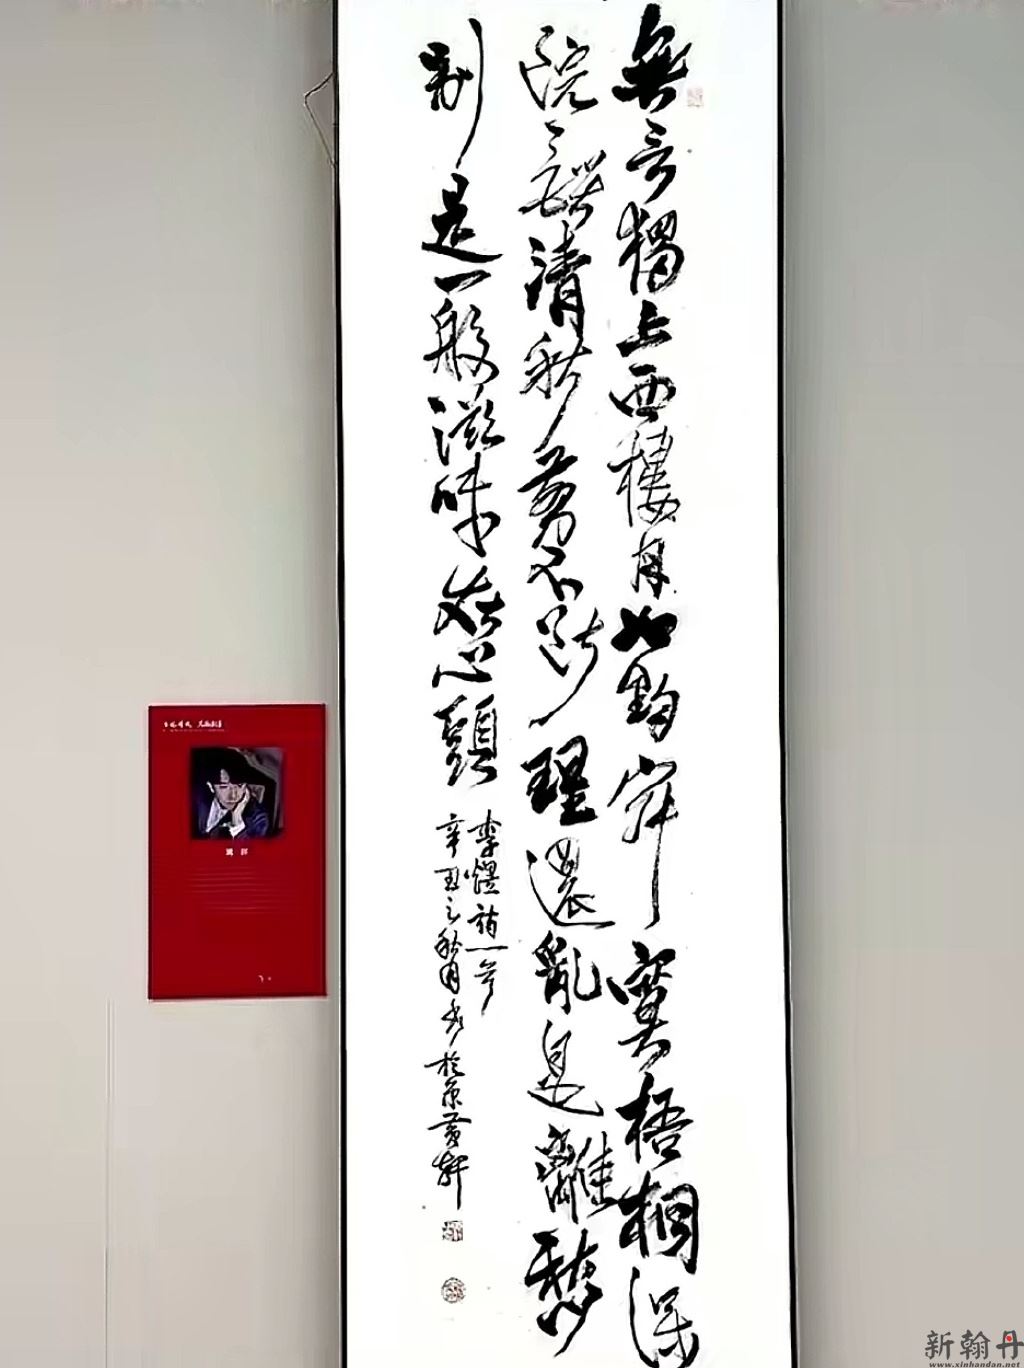 無言獨上西樓月如鈎寂寞梧桐深
院鎖清秋剪不斷理還亂是離愁
別是一般滋味在心頭
李煜詞一首
辛丑之秋月書於京軒
新翰丹
www.xinhandan.net